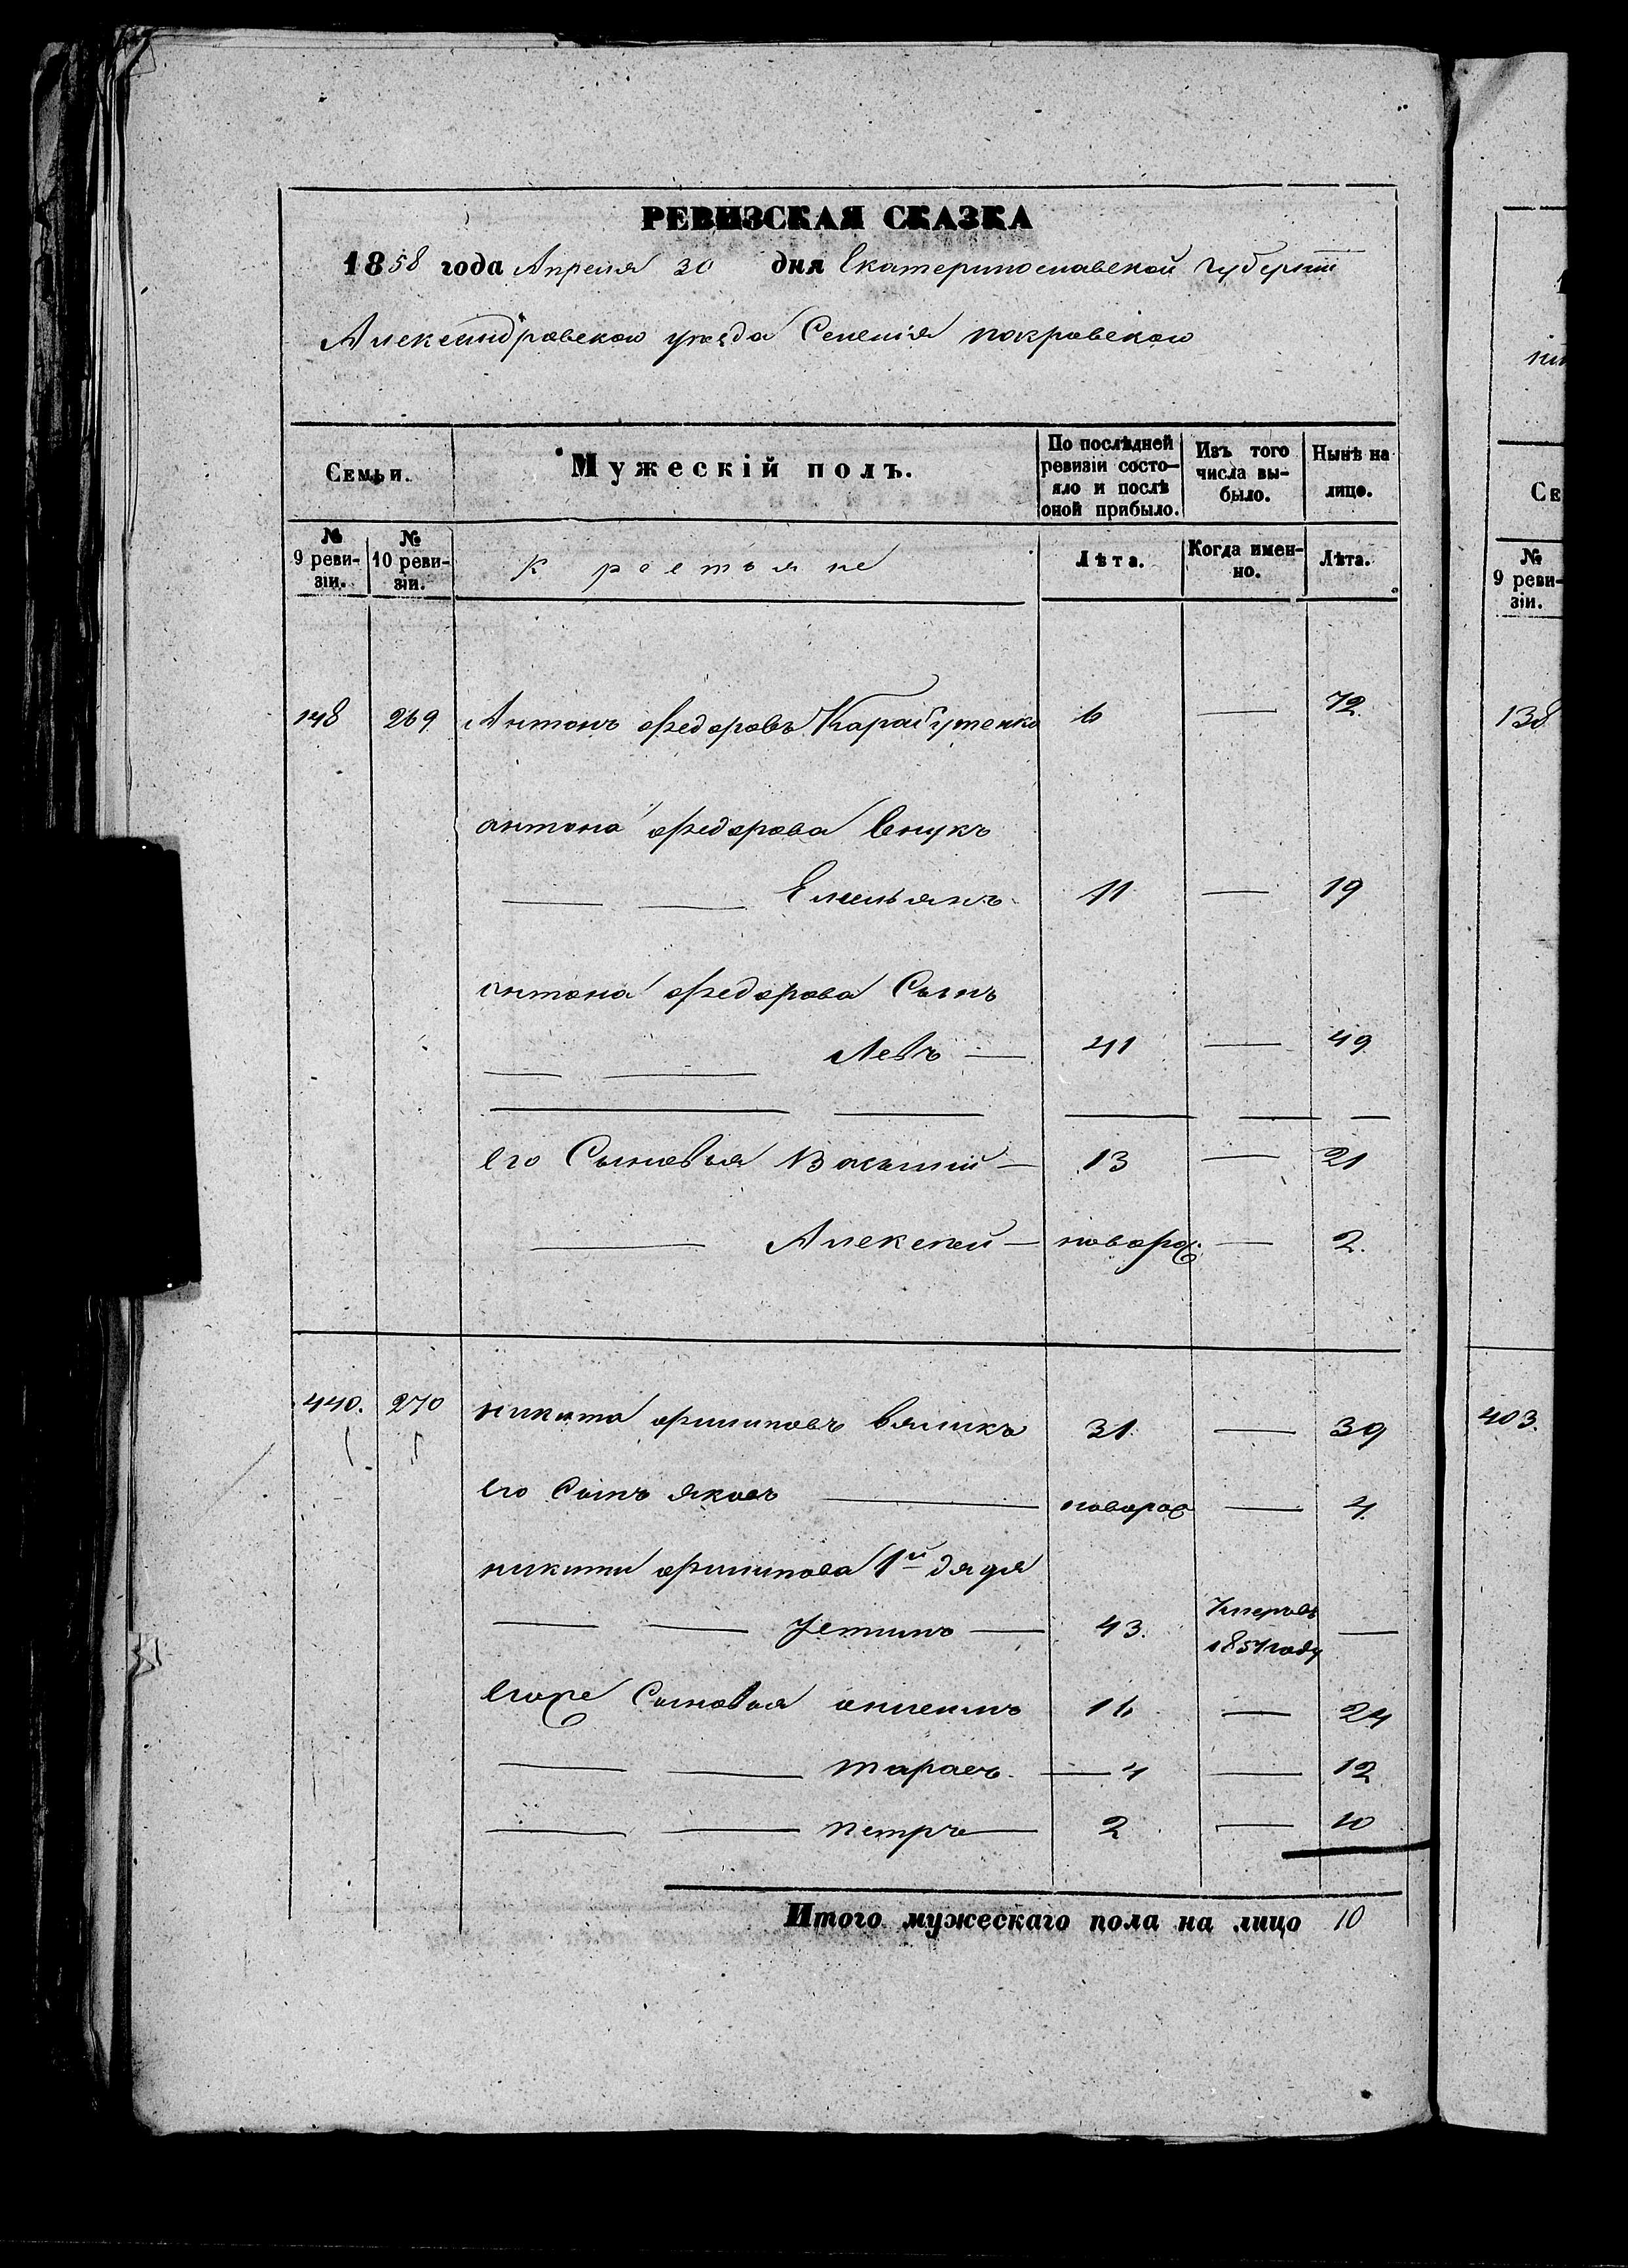 РЕВИЗСКАЯ СКАЗКА
1858 года Апреля 30 дня Екатеринославской губернии
Александровского уезда Селения покровского
Семьи.
Мужескій полъ.
По послѣдней ревизіи состо-
яло и послѣ
оной прибыло.
Изъ того
числа вы-
было.
Нынѣ на
лицо.
№
9 реви-
зіи.
№
10 реви-
зіи.
Крестьяне
Лѣта.
Когда имен-
но.
Лѣта.
148 269 Антонъ федоровъ Карабутенко — 72
антона федорова внукъ
Емельянъ 11 — 19
антона федорова Сынъ
Левъ — 41 — 49
его Сыновья Василий — 13 — 21
Алексей — новорож — 2.
440. 270 никита филиповъ 31 — 39
его Сынъ яковъ — новорож — 4
никиты филипова 1й дядя
Устимъ — 43 умеръ въ —
1854 году
его же Сыновья 16 — 24
тарасъ — 4 — 12
петръ — 2 — 10
Итого мужескаго пола на лицо 10
Се
№
9 реви-
зіи.
138
403.